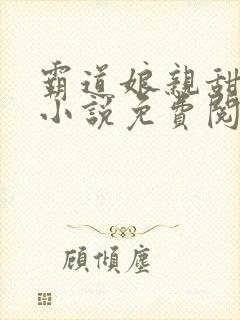 霸道娘親甜
小說免費閱
顧傾塵